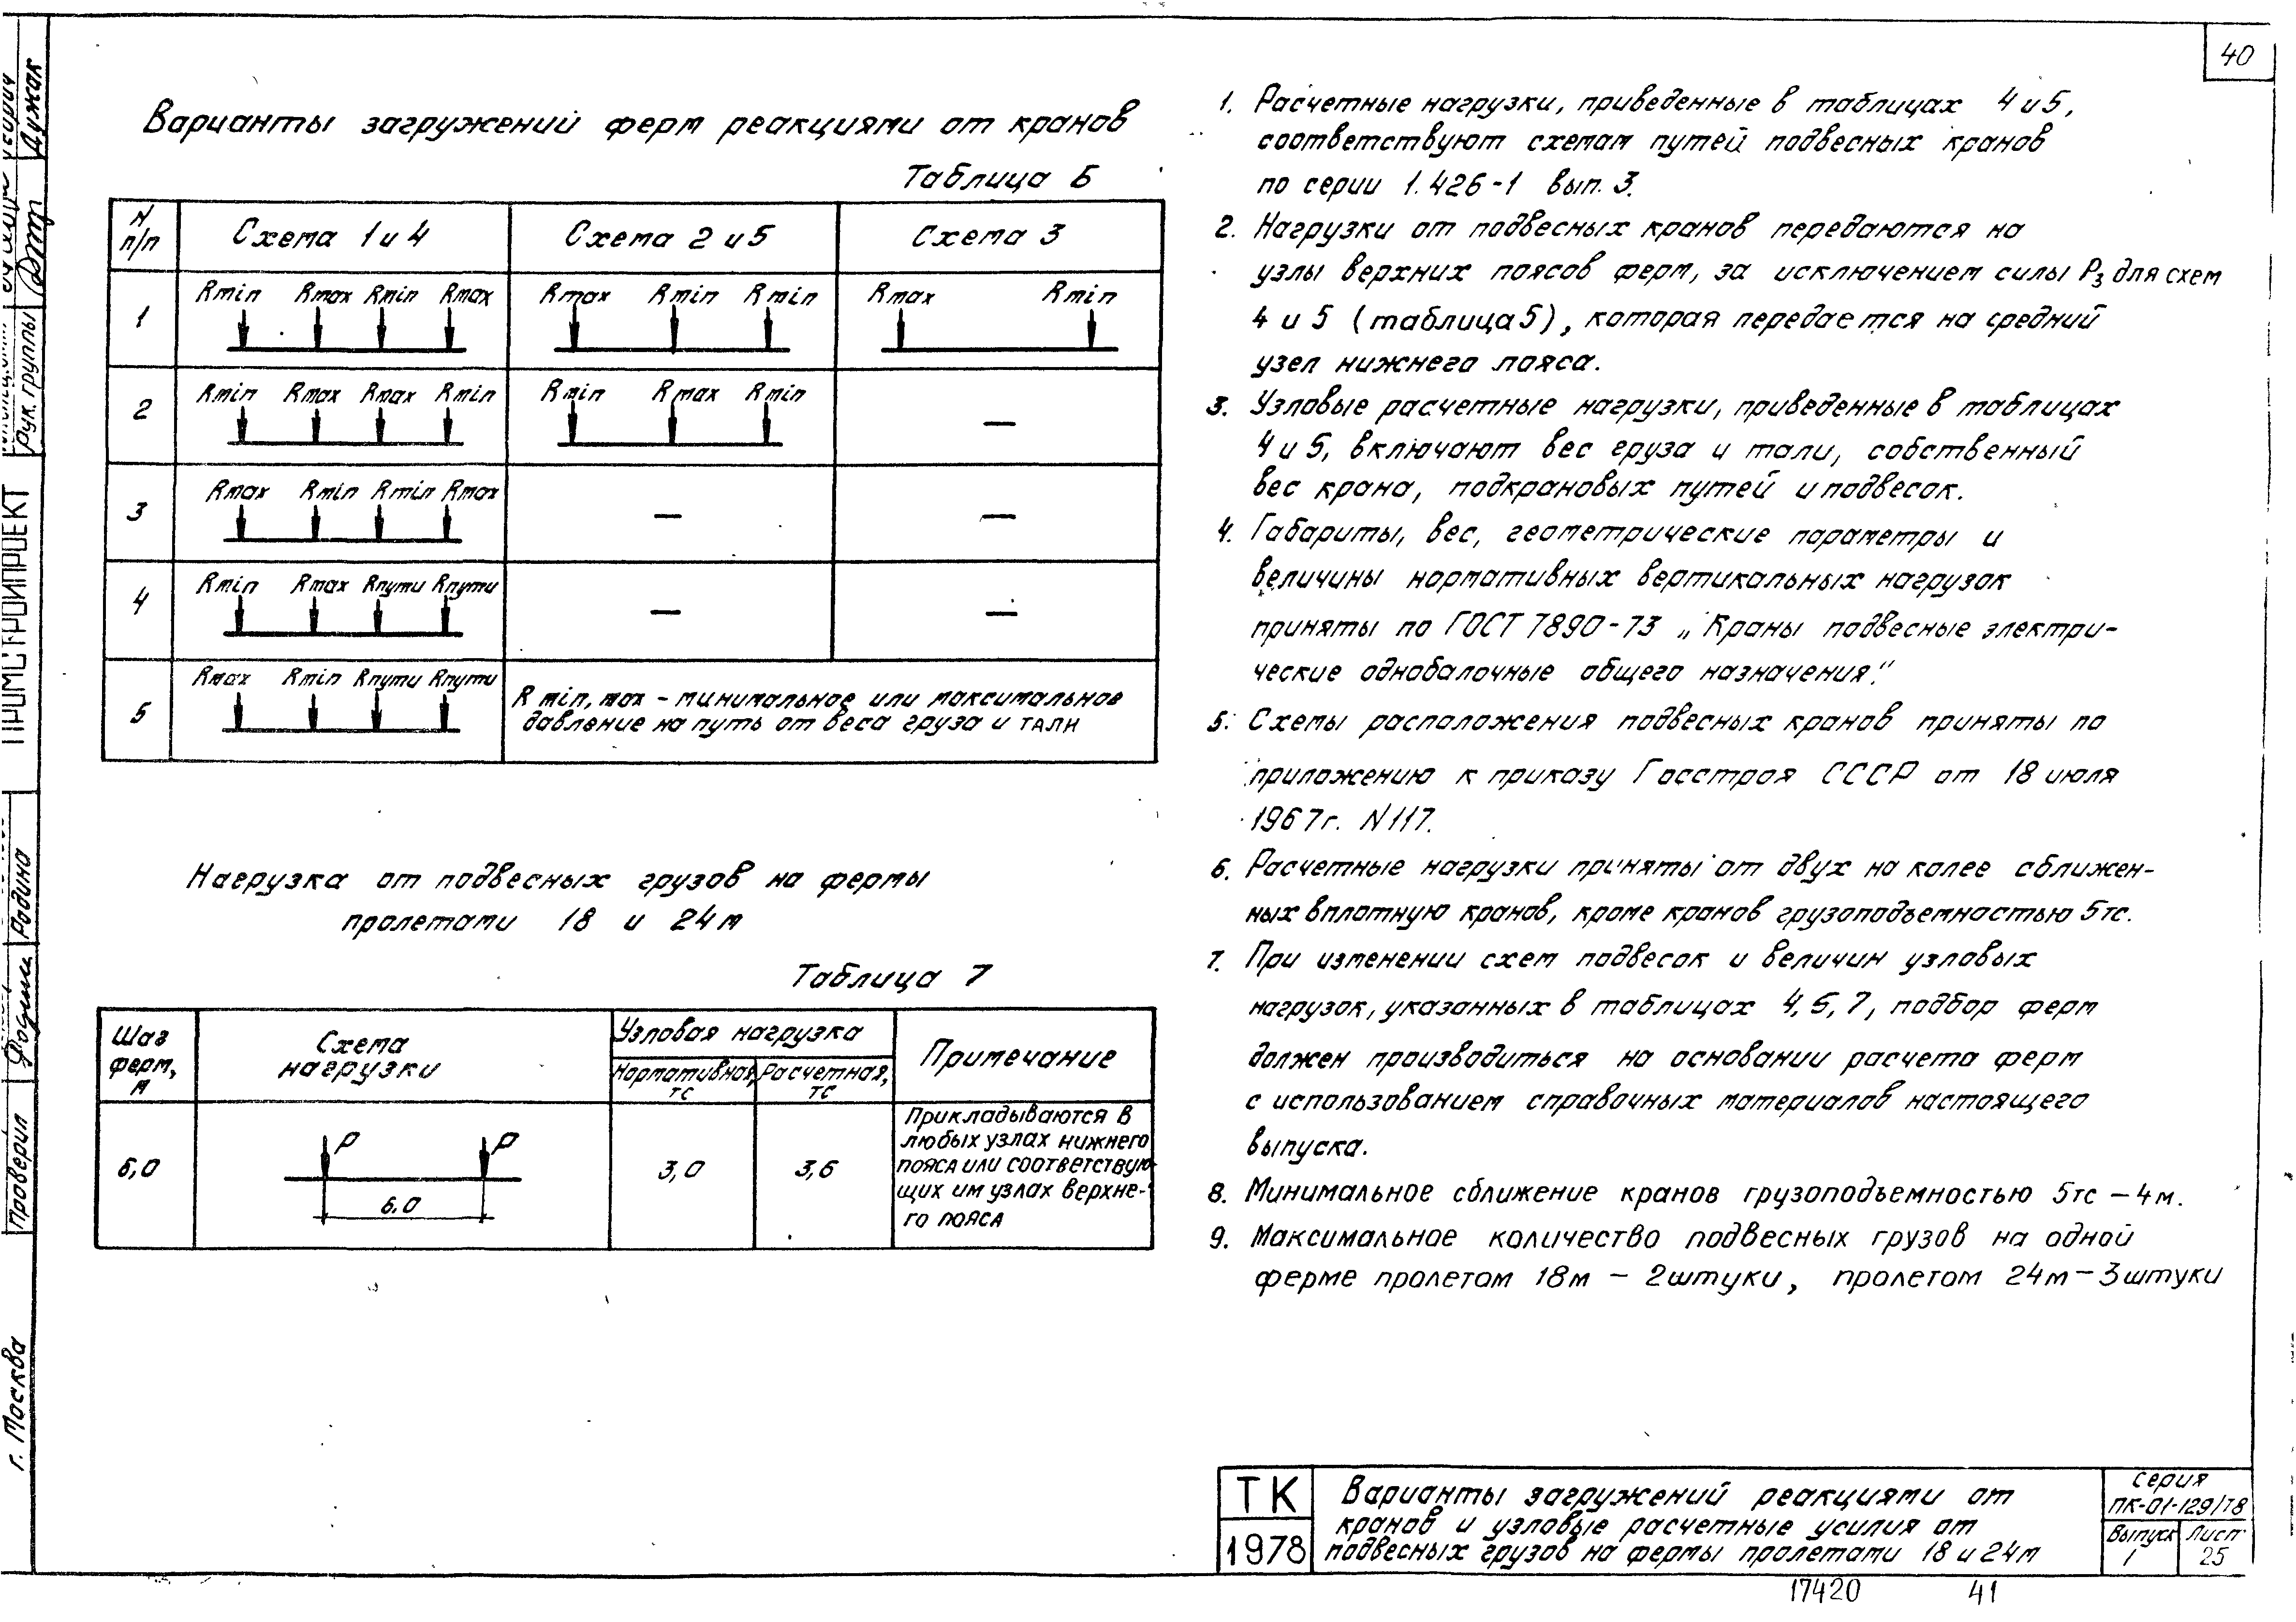 40
Варианты загружений ферм реакциями от кранов
Таблица 6
N/п/п Схема 1 и 4 Схема 2 и 5 Схема 3
1 Rmin Rmax Rmin Rmax Rmax Rmin Rmin Rmax Rmin
2 Rmin Rmax Rmax Rmin Rmin Rmax Rmin —
3 Rmax Rmin Rmin Rmax — —
4 Rmin Rmax Rпути Rпути — —
5 Rmax Rmin Rпути Rпути
R min, max – минимальное или максимальное
давление на путь от веса груза и тали
Нагрузка от подвесных грузов на фермы
пролетами 18 и 24м
Таблица 7
Шаг ферм, м
Схема нагрузки
Узловая нагрузка
Нормативная, тс
Расчетная, тс
Примечание
6,0
P P
6.0
3,0
3,6
Прикладываются в
любых узлах нижнего
пояса или соответствую-
щих им узлах верхне-
го пояса
1. Расчетные нагрузки, приведенные в таблицах 4 и 5,
соответствуют схемам путей подвесных кранов
по серии 1.426-1 вып. 3.
2. Нагрузки от подвесных кранов передаются на
узлы верхних поясов ферм, за исключением силы P3 для схем
4 и 5 (таблица 5), которая передается на средний
узел нижнего пояса.
3. Узловые расчетные нагрузки, приведенные в таблицах
4 и 5, включают вес груза и тали, собственный
вес крана, подкрановых путей и подвесок.
4. Габариты, вес, геометрические параметры и
величины нормативных вертикальных нагрузок
приняты по ГОСТ 7890-73 „Краны подвесные электри-
ческие однобалочные общего назначения".
5. Схемы расположения подвесных кранов приняты по
приложению к приказу Госстроя СССР от 18 июля
1967г. N117.
6. Расчетные нагрузки приняты от двух на колее сближен-
ных вплотную кранов, кроме кранов грузоподъемностью 5тс.
7. При изменении схем подвесок и величин узловых
нагрузок, указанных в таблицах 4, 5, 7, подбор ферм
должен производиться на основании расчета ферм
с использованием справочных материалов настоящего
выпуска.
8. Минимальное сближение кранов грузоподъемностью 5тс – 4м.
9. Максимальное количество подвесных грузов на одной
ферме пролетом 18м – 2штуки, пролетом 24м – 3штуки
ТК
1978
Варианты загружений реакциями от
кранов и узловые расчетные усилия от
подвесных грузов на фермы пролетами 18 и 24м
серия
ПК-01-129/78
Выпуск 1
Лист 25
17420 41
Дужак
Рук. группы
Родина
Проверил
г. Москва